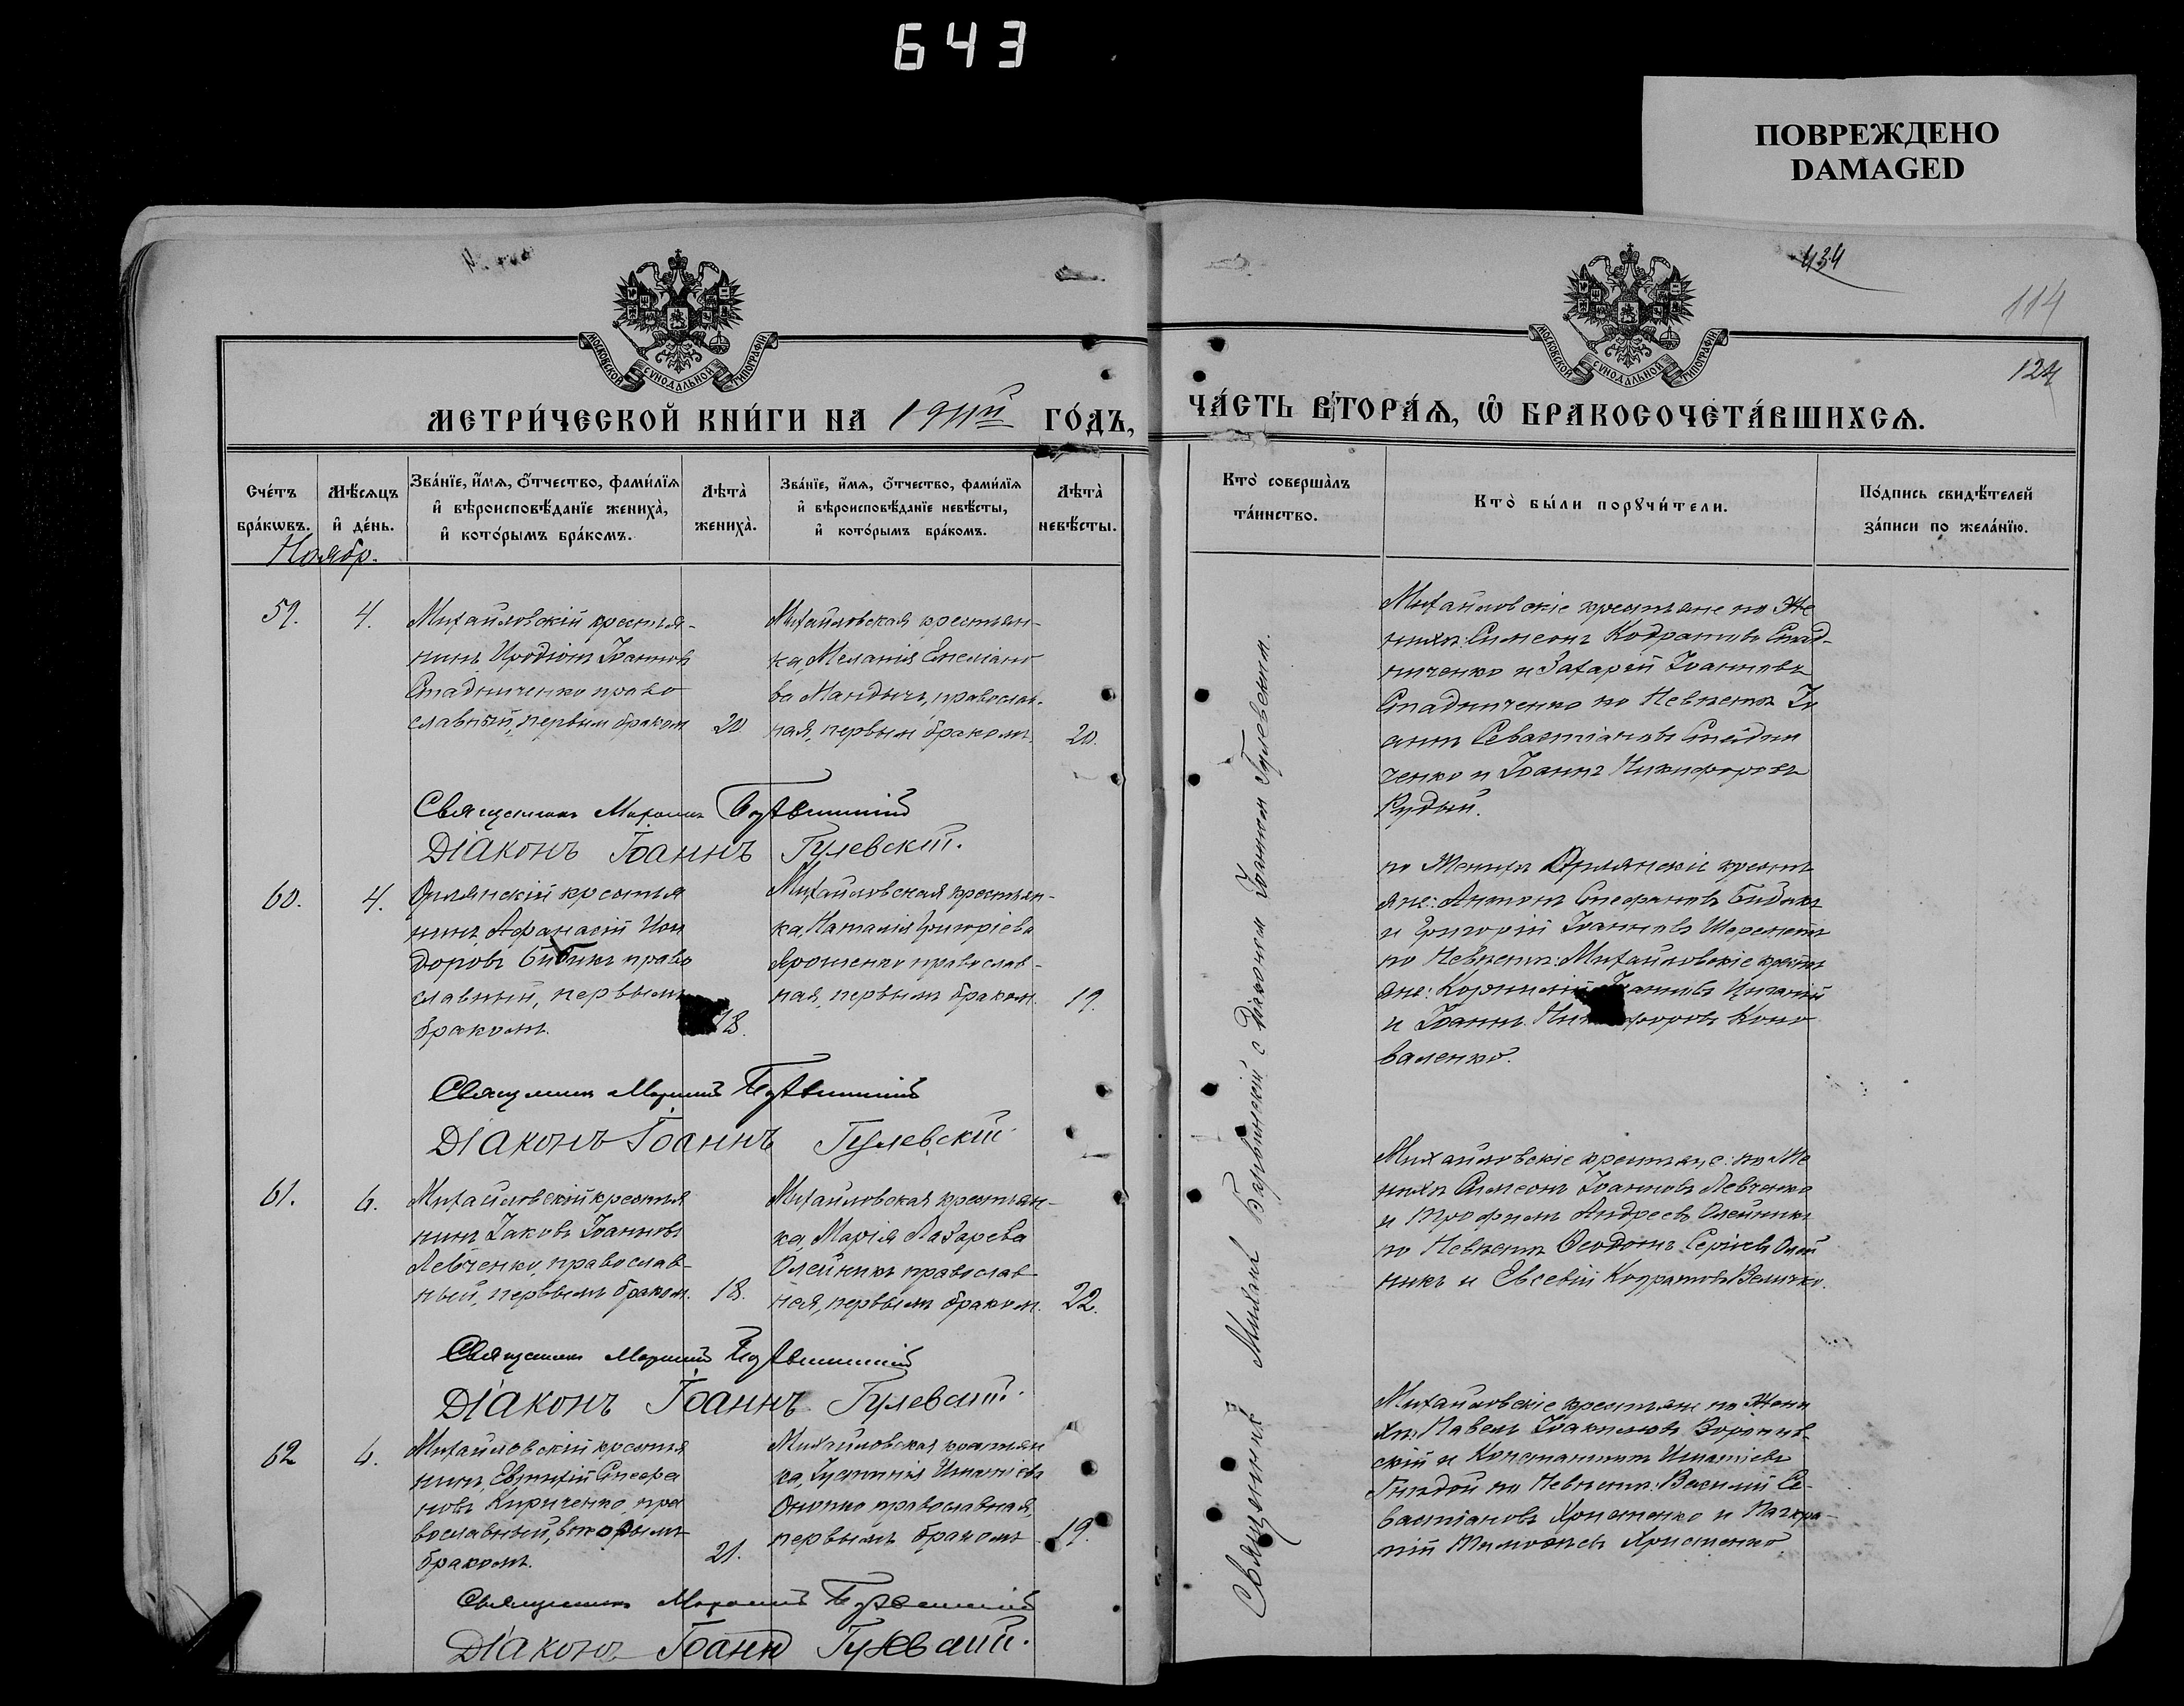 643
ПОВРЕЖДЕНО
DAMAGED
434
114
124
МОСКОВСКОЙ СѴНОДАЛЬНОЙ ТИПОГРАФІИ
МОСКОВСКОЙ СѴНОДАЛЬНОЙ ТИПОГРАФІИ
МЕТРИ́ЧЕСКОЙ КНИ́ГИ НА 1911й ГО́ДЪ,
ЧА́СТЬ ВТОРА́Ѧ, Ѽ БРАКОСОЧЕТА́ВШИХСѦ.
Сче́тъ бра́кѡвъ.
Мѣ́сѧцъ и҆ де́нь.
Зва́нїе, и҆́мѧ, ѻ҆́тчество, фами́лїѧ и҆ вѣроисповѣ́данїе жениха̀, и҆ кото́рымъ бра́комъ.
Лѣта̀ жениха̀.
Зва́нїе, и҆́мѧ, ѻ҆́тчество, фами́лїѧ и҆ вѣроисповѣ́данїе невѣ́сты, и҆ кото́рымъ бра́комъ.
Лѣта̀ невѣ́сты.
Кто̀ соверша̀лъ та́инство.
Кто̀ бы́ли порꙋчи́тели.
По́дпись свидѣ́телей за́писи по жела́нїю.
Ноябр.
59.
4.
Михайловскій крестья-
нинъ Иродіонъ Іоанновъ
Спадниченко право
славный, первым браком
20
Михайловская крестьян-
ка, Меланія Емеліано
ва Мандычъ, православ-
ная, первым бракомъ.
20.
Михайловскіе крестьяне по Же
ниху: Симеонъ Кодратовъ Спад-
ниченко и Захарій Іоанновъ
Спадниченко по Невѣстѣ Іо
аннъ Севастіановъ
ченко и Іоаннъ Никифоровъ
Рудый.
Священникъ Михаилъ
Діаконъ Іоаннъ Гулевскій.
60.
4.
крестья
нинъ Афанасій Иси
доровъ Бибикъ право
славный, первымъ
бракомъ.
18.
Михайловская крестьян-
ка, Наталія Григоріева
Ярошенко православ-
ная, первымъ браком.
19.
по Женихѣ крестъ
яне: Антонъ Стефановъ
и Григорій Іоанновъ Шеремет
по Невѣстѣ: Михайловскіе крест
яне: Іоанновъ
и Іоаннъ Коно
валенко.
Священник
Діаконъ Іоаннъ Гулевскій
61.
6.
Михайловскій крестья
нинъ Іаковъ Іоанновъ
Левченко, православ-
ный, первымъ браком.
18.
Михайловская крестьян-
ка, Марія Лазарева
Олейникъ православ
ная, первымъ браком.
22.
Михайловскіе крестьяне: по Же
ниху Симеонъ Іоанновъ Левченко
и Трофимъ Андреевъ Олейникъ
по Невѣстѣ Ѳеодотъ Сергіевъ Олей
никъ и Евсевій Кодратовъ Величко.
Священник
Діаконъ Іоаннъ Гулевскій.
62
6.
Михайловскій крестья
нинъ, Евтихій Стефа
новъ Кириченко, пра
вославный, вторымъ
бракомъ.
21.
Михайловская крестьян
ка, Іустинія Игнатіева
православная,
первымъ бракомъ
19.
Михайловскіе крестьяне по Жени
хѣ: Павелъ Іоакимовъ
скій и Константинъ Игнатіевъ
по Невѣстѣ: Василій Се-
вастіановъ Христенко и
Христенко
Священникъ
Діаконъ Іоаннъ Гулевскій.
Священникъ Михаил с Діаконом Іоанном Гулевским.